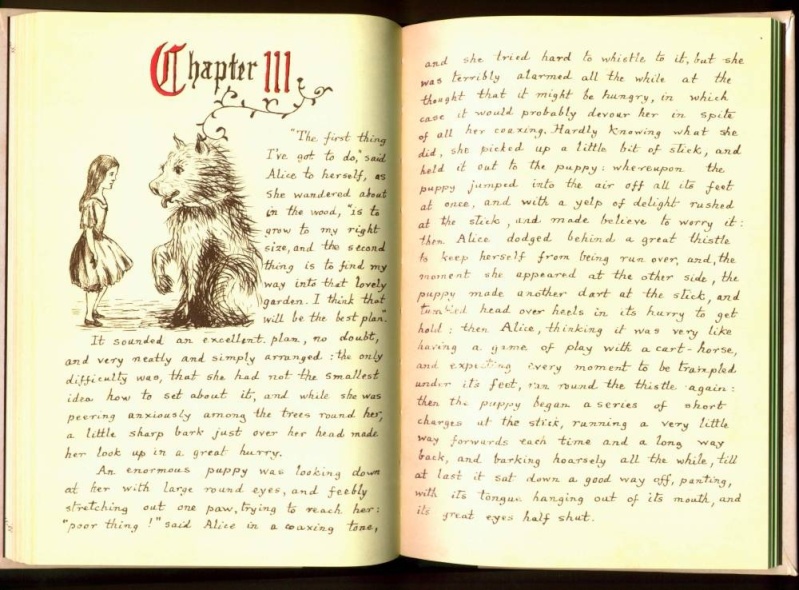 Chapter III
"The first thing
I've got to do," said
Alice to herself, as
she wandered about
in the wood, "is to
grow to my right
size, and the second
thing is to find my
way into that lovely
garden. I think that
will be the best plan".
It sounded an excellent plan, no doubt,
and very neatly and simply arranged: the only
difficulty was, that she had not the smallest
idea how to set about it, and while she was
peering anxiously among the trees round her,
a little sharp bark just over her head made
her look up in a great hurry.
An enormous puppy was looking down
at her with large round eyes, and feebly
stretching out one paw, trying to reach her:
"poor thing!" said Alice in a coaxing tone,
and she tried hard to whistle to it, but she
was terribly alarmed all the while at the
thought that it might be hungry, in which
case it would probably devour her in spite
of all her coaxing. Hardly knowing what she
did, she picked up a little bit of stick, and
held it out to the puppy: whereupon the
puppy jumped into the air off all its feet
at once, and with a yelp of delight rushed
at the stick, and made believe to worry it:
then Alice dodged behind a great thistle
to keep herself from being run over, and, the
moment she appeared at the other side, the
puppy made another dart at the stick, and
tumbled head over heels in its hurry to get
hold: then Alice, thinking it was very like
having a game of play with a cart-horse,
and expecting every moment to be trampled
under its feet, ran round the thistle again:
then the puppy began a series of short
charges at the stick, running a very little
way forwards each time and a long way
back, and barking hoarsely all the while, till
at last it sat down a good way off, panting,
with its tongue hanging out of its mouth, and
its great eyes half shut.